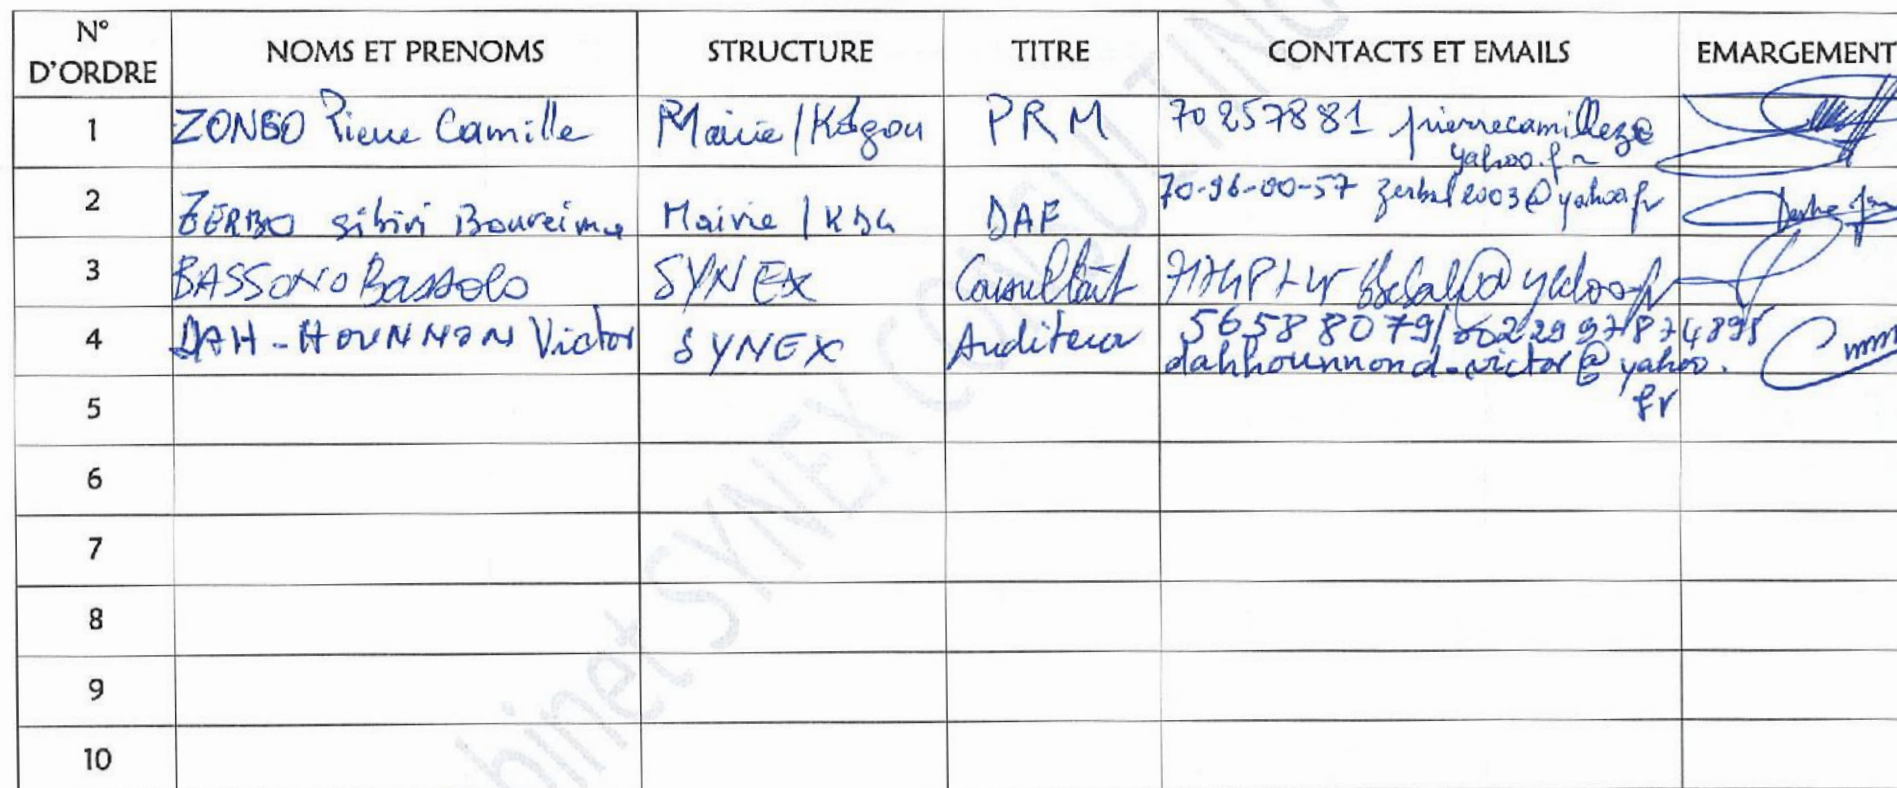 N° D'ORDRE NOMS ET PRENOMS STRUCTURE TITRE CONTACTS ET EMAILS EMARGEMENT
1 ZONGO Pierre Camille Mairie / PRM 70257881 pierrecamillez@
yahoo.fr
2 ZERBO Sibiri Boureima Mairie / DAF 70-96-00-57
3 BASSONO Bassolo SYNEX Consultant
4 DAH-HOUNNON Victor SYNEX Auditeur 56588079/0022997874895
dahhounnond_victor@yahoo.
fr
5
6
7
8
9
10
binet SYNEX CONSULTING